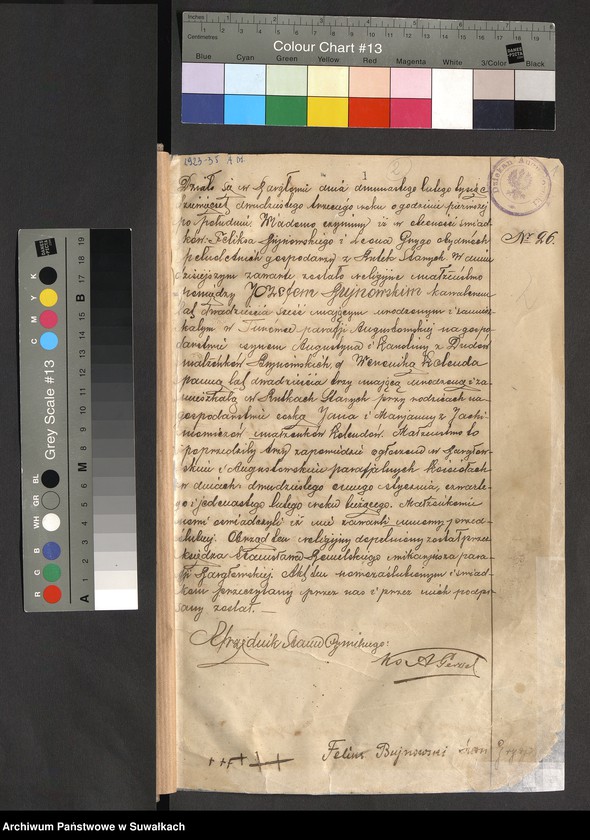 Inches
Centimetres
Colour Chart #13
DANES PICTA
Blue Cyan Green Yellow Red Magenta White 3/Color Black
Grey Scale #13
C M Y K
R G B WH GR BL
A 1 2 3 4 5 6 M 8 9 10 11 12 13 14 15 B 17 18 19
1923-35
1
Nº 26.
Działo się w Bargłowie dnia dwunastego lutego tysiąc
dziewięćset dwudziestego trzeciego roku o godzinie pierwszej
po południu. Wiadomo czynimy iż w obecności świad-
ków: Feliksa Bujnowskiego i Leona Grygo obydwuch
pełnoletnich gospodarzy z Rutek Starych w dniu
dzisiejszym zawarte zostało religijne małżeństwo
pomiędzy Józefem Bujnowskim kawalerem
lat dwadzieścia sześć mającym urodzonym i zamiesz-
kałym w parafji Augustowskiej na gospo-
darstwie synem Augustyna i Karoliny z
małżonków Bujnowskich, a Weroniką Kolenda
panną lat dwadzieścia trzy mającą urodzoną i za-
mieszkałą w Rutkach Starych przy rodzicach na
gospodarstwie córką Jana i Marjanny z Jachi-
mowiczów małżonków Kolendów. Małżeństwo to
poprzedziły trzy zapowiedzie ogłoszone w Bargłow-
skim i Augustowskim parafjalnych kościołach
w dniach: dwudziestego ósmego stycznia, czwarte-
go i jedenastego lutego roku bieżącego. Małżonkowie
nowi oświadczyli iż nie zawarli umowy przed-
ślubnej. Obrząd ten religijny dopełniony został przez
księdza Stanisława wikarjusza para-
fji Bargłowskiej. Akt ten nowozaślubionym i świad-
kom przeczytany przez nas i przez nich podpi-
sany został. —
Urzędnik Stanu Cywilnego:
Ks A
+++ ++ Feliks Bujnowski Leon Grygo
Archiwum Państwowe w Suwałkach